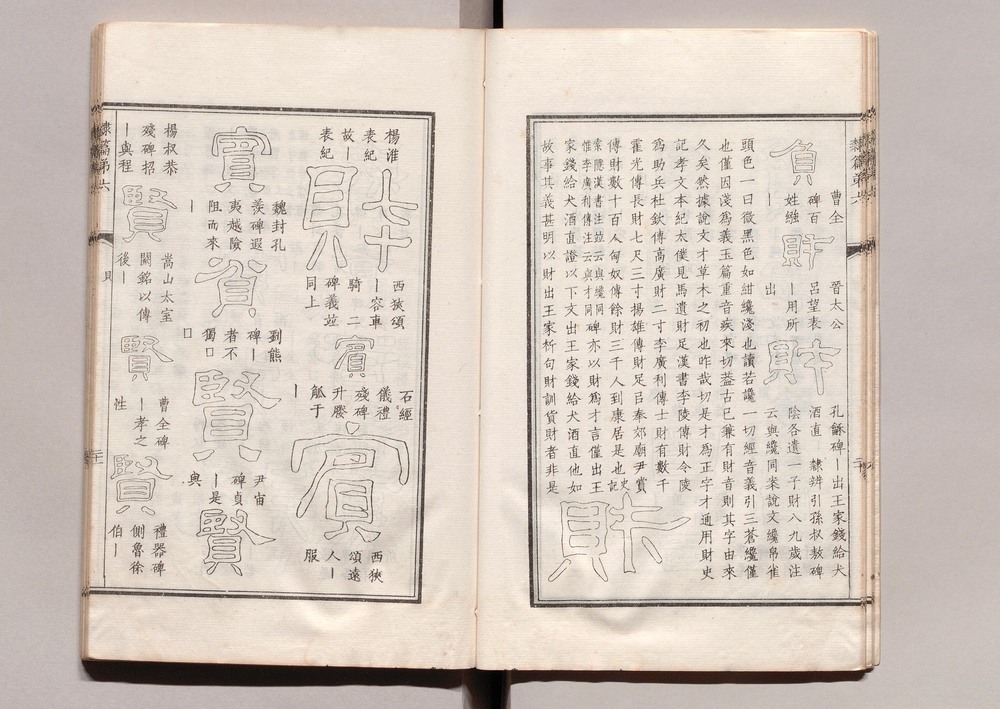 隸篇第六
負
曹全
碑百
姓繈
—
財
晉太公
呂望表
—用所
出
財
孔龢碑—出王家錢給犬
酒直 隸辨引孫叔敖碑
陰各遺一子財八九歲注
云與纔同案說文纔帛雀
頭色一曰微黑色如紺纔淺也讀若讒一切經音義引三蒼纔僅
也僅因淺爲義玉篇重音疾來切葢古已兼有財音則其字由來
久矣然據說文才草木之初也昨哉切是才爲正字才通用財史
記孝文本紀太僕見馬遺財足漢書李陵傳財令陵
爲助兵杜欽傳高廣財二寸李廣利傳士財有數千
霍光傳長財七尺三寸揚雄傳財足㠯奉郊廟尹賞
傳財數十百人匈奴傳餘財三千人到康居是也史
索隱漢書注竝云與纔同
惟李廣利傳注云與才同
碑亦以財爲才言僅出王
家錢給犬酒直證以下文出王家錢給犬酒直他如
故事其義甚明以財出王家析句財訓貨財者非是
財
楊淮
表紀
故—
表紀
財
西狹頌
—容車
騎二
碑義竝
同上
賓
石經
儀禮
殘碑
升媵
觚于
—
賓
西狹
頌遠
人—
服
賓
魏封孔
羨碑遐
夷越險
阻而來
—
貧
劉熊
碑—
者不
獨□
□
賢
尹宙
碑貞
—是
與
賢
楊叔恭
殘碑招
—與程
賢
嵩山太室
闕銘以傳
後—
賢
曹全碑
—孝之
性
賢
禮器碑
側魯徐
伯—
隸篇第六
貝